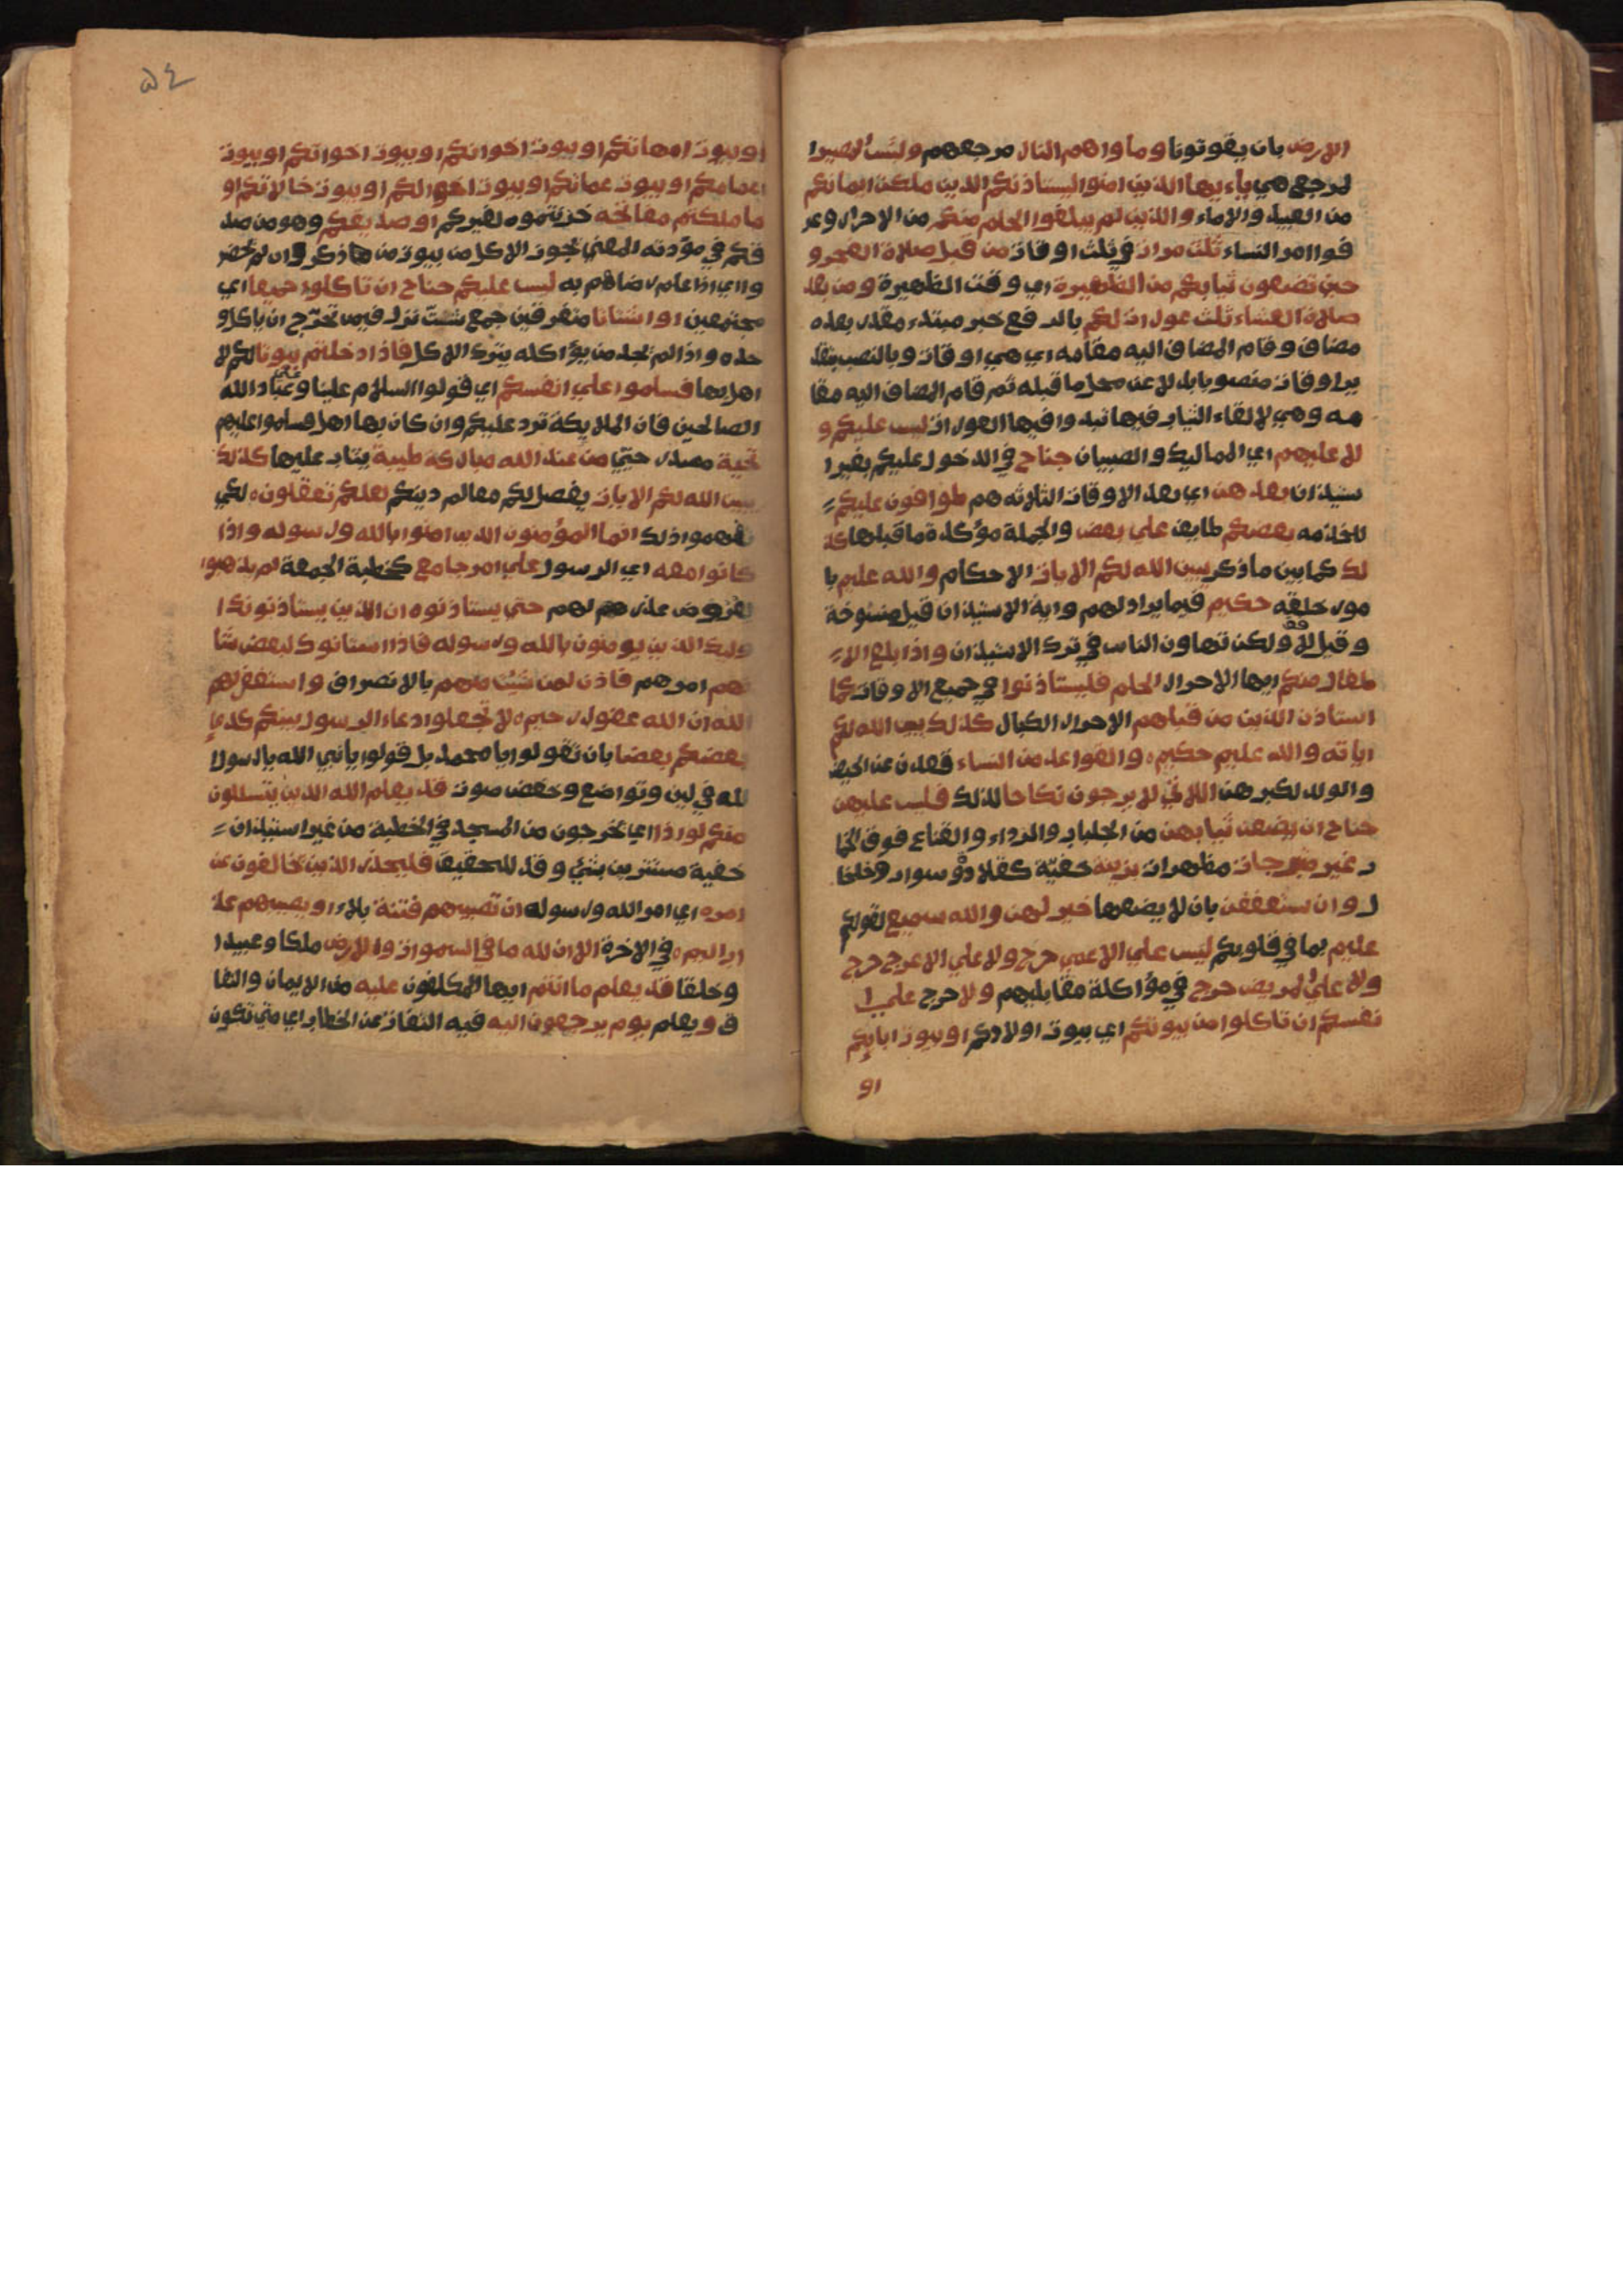 الارض بان يفوتونا وماواهم النار مرجعهم ولبئس المصير ا
لمرجع هي ياءيها الذين امنوا ليستاذنكم الذين ملكت ايمانكم
من العبيد والاماء والذين لم يبلغوا الحلم منكم من الاحرار وعر
فوا امر النساء ثلث مرات في ثلث اوقات من قبل صلاة الفجر و
حين تضعون ثيابكم من الظهيرة اي وقت الظهيرة ومن بعد
صلاة العشاء ثلث عورات لكم بالرفع خبر مبتدء مقدر بعده
مضاف وقام المضاف اليه مقامه اي هي اوقات وبالنصب بتقد
ير اوقات منصوبا بدلا عن محل ما قبله ثم قام المضاف اليه مقا
مه وهي لالقاء الثياب فيها تبدوا فيها العورات ليس عليكم و
لا عليهم اي المماليك والصبيان جناح في الدخول عليكم بغير ا
ستيذان بعدهن اي بعد الاوقات الثلاثه هم طوافون عليكم
للخدمه بعضكم طايف علي بعض والجملة مؤكدة ما قبلها كذ
لك كما بين ما ذكر يبين الله لكم الايات الاحكام والله عليم با
مور خلقه حكيم فيما يراد لهم واية الاستيذان قيل منسوخة
وقيل لا ولكن تهاون الناس في ترك الاستيذان واذا بلغ الا
طفال منكم ايها الاحرار الحلم فليستاذنوا في جميع الاوقات كما
استاذن الذين من قبلهم الاحرار الكبار كذلك يبين الله لكم
اياته والله عليم حكيم والقواعد من النساء قعدن عن الحيض
والولد لكبرهن اللاتي لا يرجون نكاحا لذلك فليس عليهن
جناح ان يضعن ثيابهن من الجلباب والرداء والقناع فوق الخما
ر غير متبرجات مظهرات بزينة خفيّة كقلادة وسوار وخلخا
ل وان يستعففن بان لا يضعنها خير لهن والله سميع لقولكم
عليم بما في قلوبكم ليس علي الاعمي حرج ولا علي الاعرج حرج
ولا علي المريض حرج في مؤاكلة مقابليهم ولا حرج علي ا
نفسكم ان تاكلوا من بيوتكم اي بيوت اولادكم او بيوت ابايكم
او
٥٤
او بيوت امهاتكم او بيوت اخوانكم او بيوت اخواتكم او بيوت
اعمامكم او بيوت عماتكم او بيوت اخوالكم او بيوت خالاتكم او
ما ملكتم مفاتحه خزنتموه لغيركم او صديقكم وهو من صد
قكم في مودته المعني يجوز الاكل من بيوت من ذكر وان لم يحضر
وا اي اذا علم رضاهم به ليس عليكم جناح ان تاكلوا جميعا اي
مجتمعين او اشتاتا متفرقين جمع شتّ نزل فيمن تحرّج ان ياكل و
حده واذا لم يجد من يؤاكله يترك الاكل فاذا دخلتم بيوتا لكم لا
اهل بها فسلموا علي انفسكم اي قولوا السلام علينا وعلي عباد الله
الصالحين فان الملايكة ترد عليكم وان كان بها اهل فسلموا عليهم
تحية مصدر حيي من عند الله مباركة طيبة يثاب عليها كذلك
يبين الله لكم الايات يفصل لكم معالم دينكم لعلكم تعقلون لكي
تفهموا ذلك انما المؤمنون الذين امنوا بالله ورسوله واذا
كانوا معه اي الرسول علي امر جامع كخطبة الجمعة لم يذهبوا
لعروض عذر لهم حتي يستاذنوه ان الذين يستاذنونك ا
وليك الذين يومنون بالله ورسوله فاذا استانوك لبعض شا
نهم امرهم فاذن لمن شئت منهم بالانصراف واستغفر لهم
الله ان الله غفور رحيم لا تجعلوا دعاء الرسول بينكم كدعاء
بعضكم بعضا بان تقولوا يا محمد بل قولوا يا نبي الله يا رسول ا
لله في لين وتواضع وخفض صوت قد يعلم الله الذين يتسللون
منكم لواذا اي يخرجون من المسجد في الخطبة من غير استيذان
خفية مستترين بشئ وقد للتحقيق فليحذر الذين يخالفون عن
امره اي امر الله ورسوله ان تصيبهم فتنة بلاء او يصيبهم عذ
اب اليم في الاخرة الا ان لله ما في السموات والارض ملكا وعبيدا
وخلقا قد يعلم ما انتم ايها المكلفون عليه من الايمان والنفا
ق ويعلم يوم يرجعون اليه فيه التفات عن الخطاب اي متي تكون